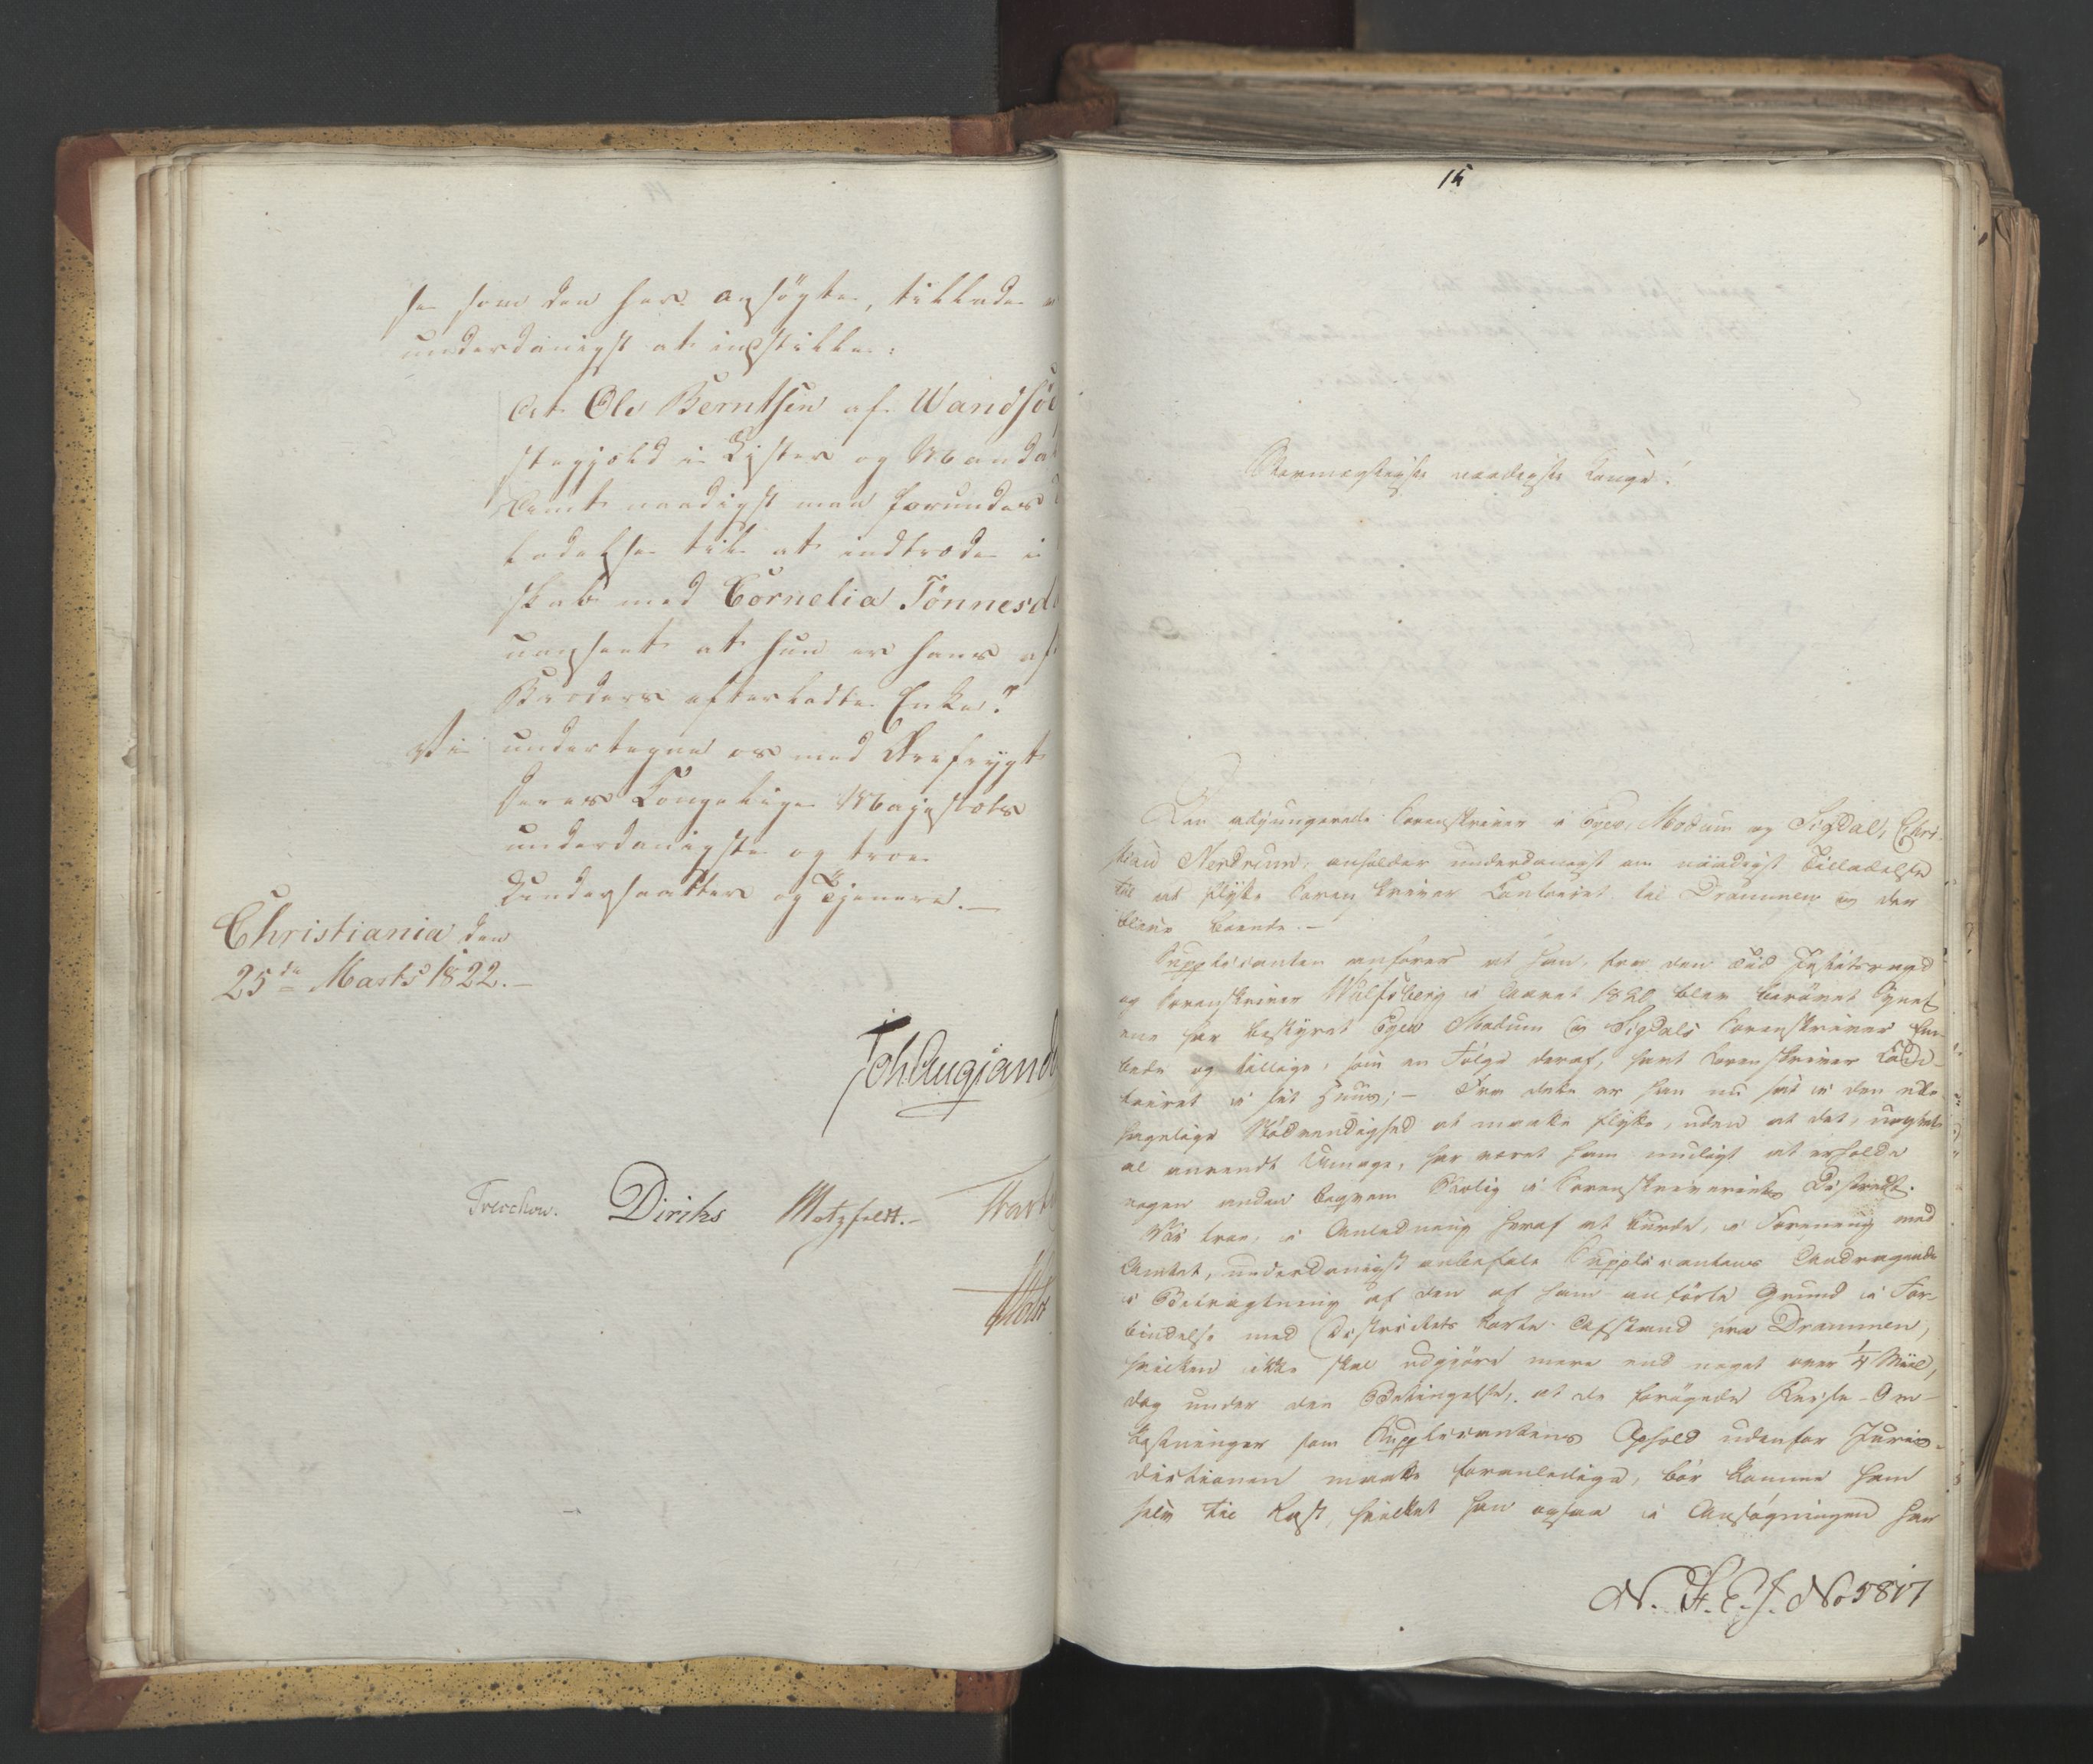 se som den her ansögte, tillade
underdanigst at indstille:
At Ole Berntsen af Wandsöe
stegjeld i Lister og Mandal
Amt naadigst maa forundes
ladelse til at indtræde i
skab med Cornelia Tönnesd
uanseet at hun er hans af
Broders efterladte Enke."
Vi undertegne os med Ærefrygt
Deres Kongelige Majestæts
underdanigste og troe
Undersaatter og Tjenere.—
Christiania den
25de Marts 1822.—
Joh Aug Sand
Treschow. Diriks Motzfeldt.—
Holst
15
Stormægtigste naadigste Konge!
Den adjungerede Sorenskriver i Eger, Modum og Sigdal, Chri-
stian Nerdrum, anholder underdanigst om naadigst Tilladelse
til at flytte Sorenskriver Contoiret til Drammen og der
blive boende.—
Supplicanten anförer at han, fra den Tid Justitsraad
og Sorenskriver Wulfsberg i Aaret 1820 blev berövet Synet
ene har bestyret Eger Modum og Sigdals Sorenskriver Em-
bede og tillige, som en Fölge deraf, havt Sorenskriver Con-
toiret i sit Huus;— Fra dette er han nu sat i den ube-
hagelige Nödvendighed at maatte flytte, uden at det, uagtet
al anvendt Umage, har været ham muligt at erholde
nogen anden beqvem Bolig i Sorenskriveriets District.
Vi troe, i Anledning heraf at burde, i Forening med
Amtet, underdanigst anbefale Supplicantens Andragende
i Betragtning af den af ham anförte Grund i For-
bindelse med Districtets korte Afstand fra Drammen,
hvilken ikke skal udgjöre mere end noget over 1/4 Miil,
dog under den Betingelse, at de forögede Reise-Om-
kostninger som Supplicantens Ophold udenfor Juris-
dictionen maatte foranledige, bör komme ham
selv til Last, hvilket han ogsaa i Ansögningen har
N. H. E. J. No 5817